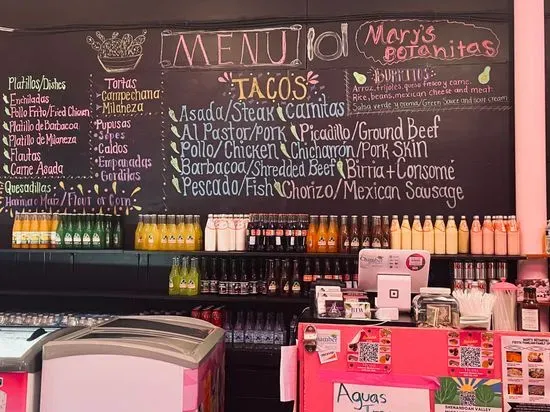 MENU
Mary's
BOTANITAS
Platillos/Dishes
Enchiladas
Pollo Frito/Fried Chicken
Platillo de Barbacoa
Platillo de Milaneza
Flautas
Carne Asada
Quesadillas
Harina o Maiz/Flour or Corn
Tortas
Campechana
Milaneza
Pupusas
Sopes
Caldos
Empanadas
Gorditas
TACOS
Asada/Steak
Al Pastor/Pork
Pollo/Chicken
Barbacoa/Shredded Beef
Pescado/Fish
Carnitas
Picadillo/Ground Beef
Chicharron/Pork Skin
Birria + Consomé
Chorizo/Mexican Sausage
BURRITOS
Arroz, frijoles, queso fresco y carne.
Rice, beans, mexican cheese and meat.
Salsa verde y crema/Green Sauce and sour cream
Chamber
Aguas
SHENANDOAH VALLEY